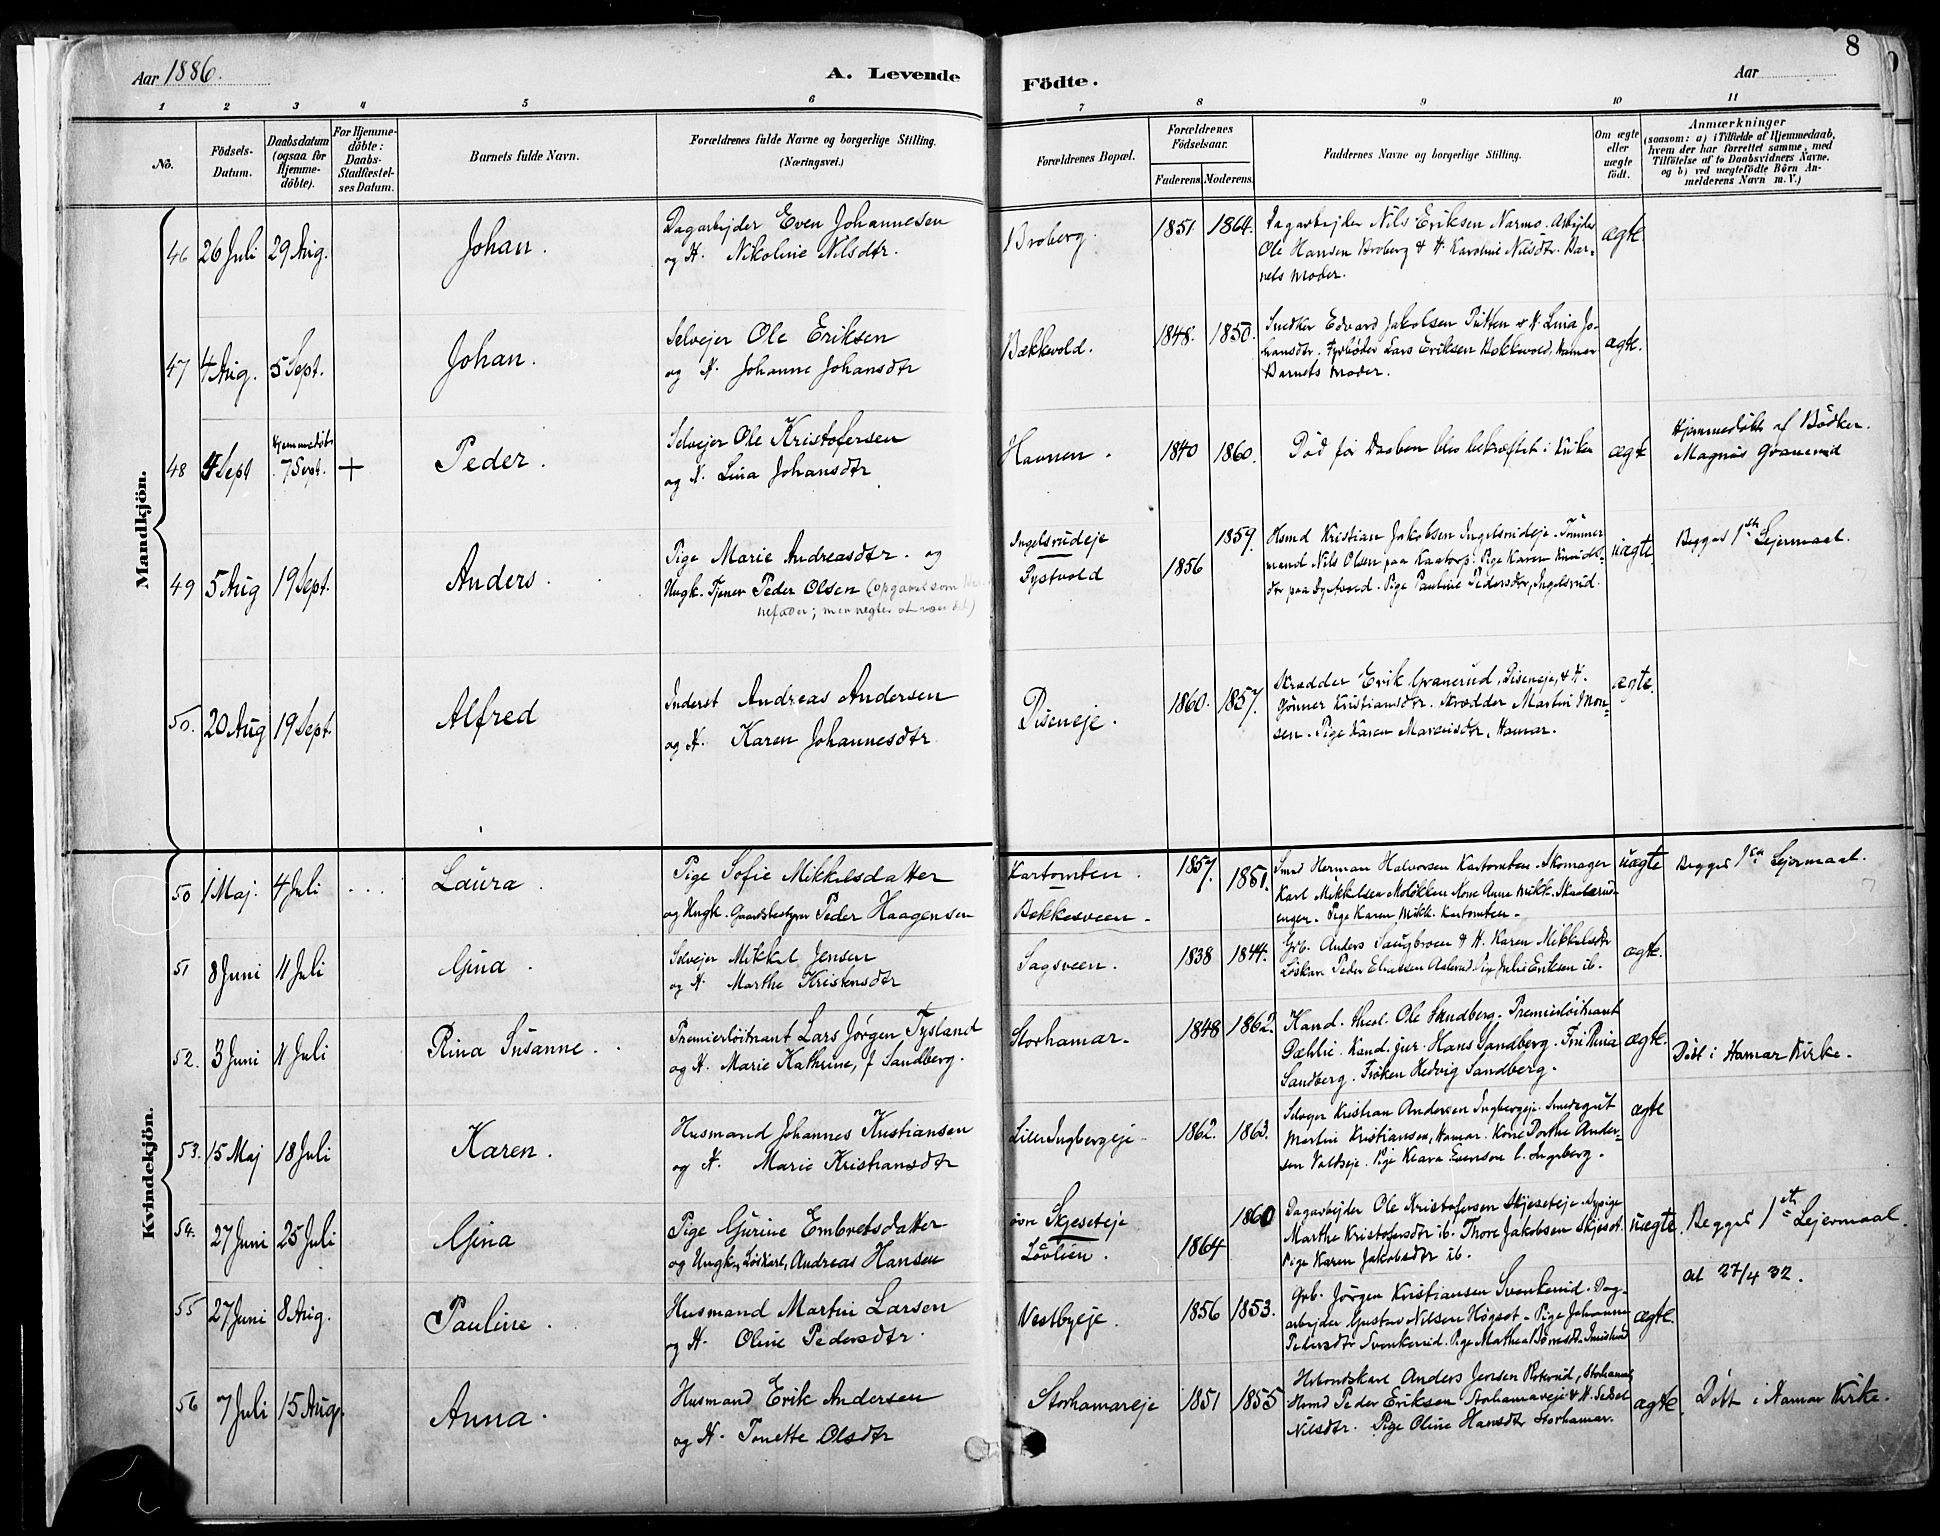 8
Aar 1886.
A. Levende
Födte.
Aar
1 2 3 4 5 6 7 8 9 10 11
No.
Födsels-
Datum.
Daabsdatum
(ogsaa for
Hjemme-
döbte).
For Hjemme-
döbte:
Daabs-
Stadfæstel-
ses Datum.
Barnets fulde Navn.
Forældrenes fulde Navne og borgerlige Stilling.
(Næringsvei.)
Forældrenes Bopæl.
Forældrenes
Födselsaar.
Faderens. Moderens.
Faddernes Navne og borgerlige Stilling.
Om ægte
eller
uægte
födt.
Anmærkninger
(saasom: a) i Tilfælde af Hjemmedaab,
hvem der har forrettet samme, med
Tilföielse af to Daabsvidners Navne.
og b) ved uægtefödte Börn An-
melderens Navn m. V.)
Mandkjön.
46 26 Juli 29 Aug. Johan.
Dagarbejder Even Johannesen
og H. Nikoline Nilsdtr.
Broberg. 1851 1864.
Dagarbejder Nils Eriksen Narmo. Arbejder
Ole Hansen Broberg & H. Karoline Nilsdtr. Bar-
nets Moder.
ægte
47 4 Aug. 5 Sept. Johan.
Selvejer Ole Eriksen
og H. Johanne Johansdtr
Bækkevold. 1848. 1850.
Snedker Edvard Jakobsen Putten & H. Lina Jo-
hansdtr. Fyrbøder Lars Eriksen Bækkevold, Hamar
Barnets Moder.
ægte.
48 4 Sept Hjemmedøbt 7 Sept. + Peder.
Selvejer Ole Kristofersen
og H. Lina Johansdtr
Havnen. 1840 1860.
Død før Daaben blev bekræftet i Kirken
ægte
Hjemmedøbt af Bødker.
Magnus Granerud
49 5 Aug 19 Sept. Anders.
Pige Marie Andreasdtr. og
Ungk. Tjener Peder Olsen (opgavet som Bar-
nefader; men negter at være det)
Ingelsrudeje
Dystvold
1856 1859.
Hsmd Kristian Jakobsen Ingelsrudeje. Tømmer
mand Nils Olsen paa Kaatorp. Pige Karen Knuds-
dtr paa Dystvold. Pige Pauline Pedersdtr, Ingelsrud.
uægte
Begges 1ste Lejermaal.
50. 20 Aug 19 Sept. Alfred
Inderst Andreas Andersen
og H. Karen Johannesdtr
Diseneje. 1860. 1857.
Skrædder Erik Granerud, Diseneje, & H.
Gønner Kristiansdtr. Skrædder Martin Mon-
sen. Pige Karen Marensdtr, Hamar.
ægte.
Kvindekjön.
50 1 Maj. 4 Juli ... Laura.
Pige Sofie Mikkelsdatter
og Ungk. Gaardsbestyrer Peder Haagensen
Kartomten.
Bekkesveen.
1857. 1851.
Smed Herman Halvorsen Kartomten. Skomager
Karl Mikkelsen Moløkken Kone Anne Mikk. Skaalerud-
enger. Pige Karen Mikk. Kartomten.
uægte
Begges 1ste Lejermaal.
51 8 Juni 11 Juli Gina.
Selvejer Mikkel Jensen
og H. Marthe Kristensdtr
Sagsveen. 1838 1844.
Grb. Anders Saugbroen & H. Karen Mikkelsdtr
Løskar Peder Eliassen Aalerud. Pige Julie Eriksen ib.
ægte.
52. 3 Juni 11 Juli Rina Susanne.
Premierløitnant Lars Jørgen Tysland
og H. Marie Kathrine, f. Sandberg.
Storhamar. 1848 1862.
Kand. theol. Ole Sandberg. Premierløitnant
Dæhlie. Kand. jur. Hans Sandberg. Frk Rina
Sandberg. Frøken Hedvig Sandberg.
ægte.
Døbt i Hamar Kirke.
53. 15 Maj 18 Juli Karen.
Husmand Johannes Kristiansen
og H. Marie Kristiansdtr
Lille Ingbergeje 1862. 1863.
Selvejer Kristian Andersen Ingbergeje. Smedegut
Martin Kristiansen, Hamar. Kone Dorthe Ander-
sen Voldseje. Pige Klara Evensen l. Ingeberg.
ægte
54. 27 Juni 25 Juli Gina
Pige Gurine Embretsdatter
og Ungk. Løskarl, Andreas Hansen
øvre Skjeseteje
Lövlien.
1864 1860
Dagarbejder Ole Kristofersen Skjeseteje. Sypige
Marthe Kristofersdtr ib. Thore Jakobsen Skjeset.
Pige Karen Jakobsdtr ib.
uægte.
Begges 1ste Lejermaal.
at 27/4 32.
55 27 Juni 8 Aug. Pauline.
Husmand Martin Larsen
og H. Oline Pedersdtr.
Vestbyeje. 1856 1853.
Grb. Jørgen Kristiansen Svenkerud. Dag-
arbejder Gustav Nilsen Høgset. Pige Johanne
Pedersdtr Svenkerud. Pige Mathea
ægte.
56 7 Juli 15 Aug. Anna.
Husmand Erik Andersen
og H. Tonette Olsdtr
Storhamareje 1851 1855
Anders Jensen Roterud, Storhamar
Hsmd Peder Eriksen Storhamareje & H.
Nilsdtr. Pige Oline Hansdtr Storhamar.
ægte.
Døbt i Hamar Kirke.